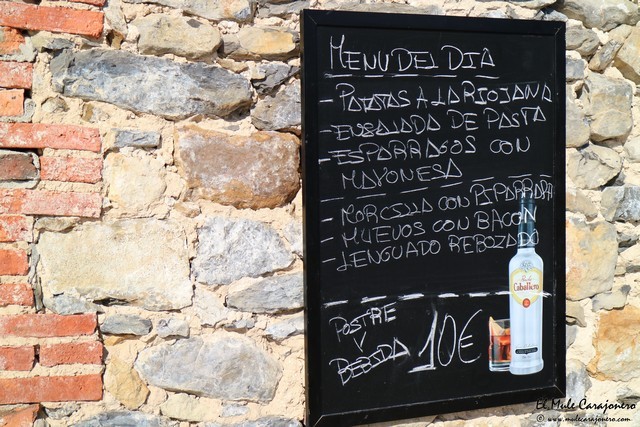 MENU DEL DIA
- PATATAS A LA RIOJANA
- ENSALADA DE PASTA
- ESPARRAGOS CON
MAYONESA
- MORCILLA CON PIPARRAK
- HUEVOS CON BACON
- LENGUADO REBOZADO
POSTRE
Y
BEBIDA
10€
Caballero
El Mule Carajonero
© www.mulecarajonero.com